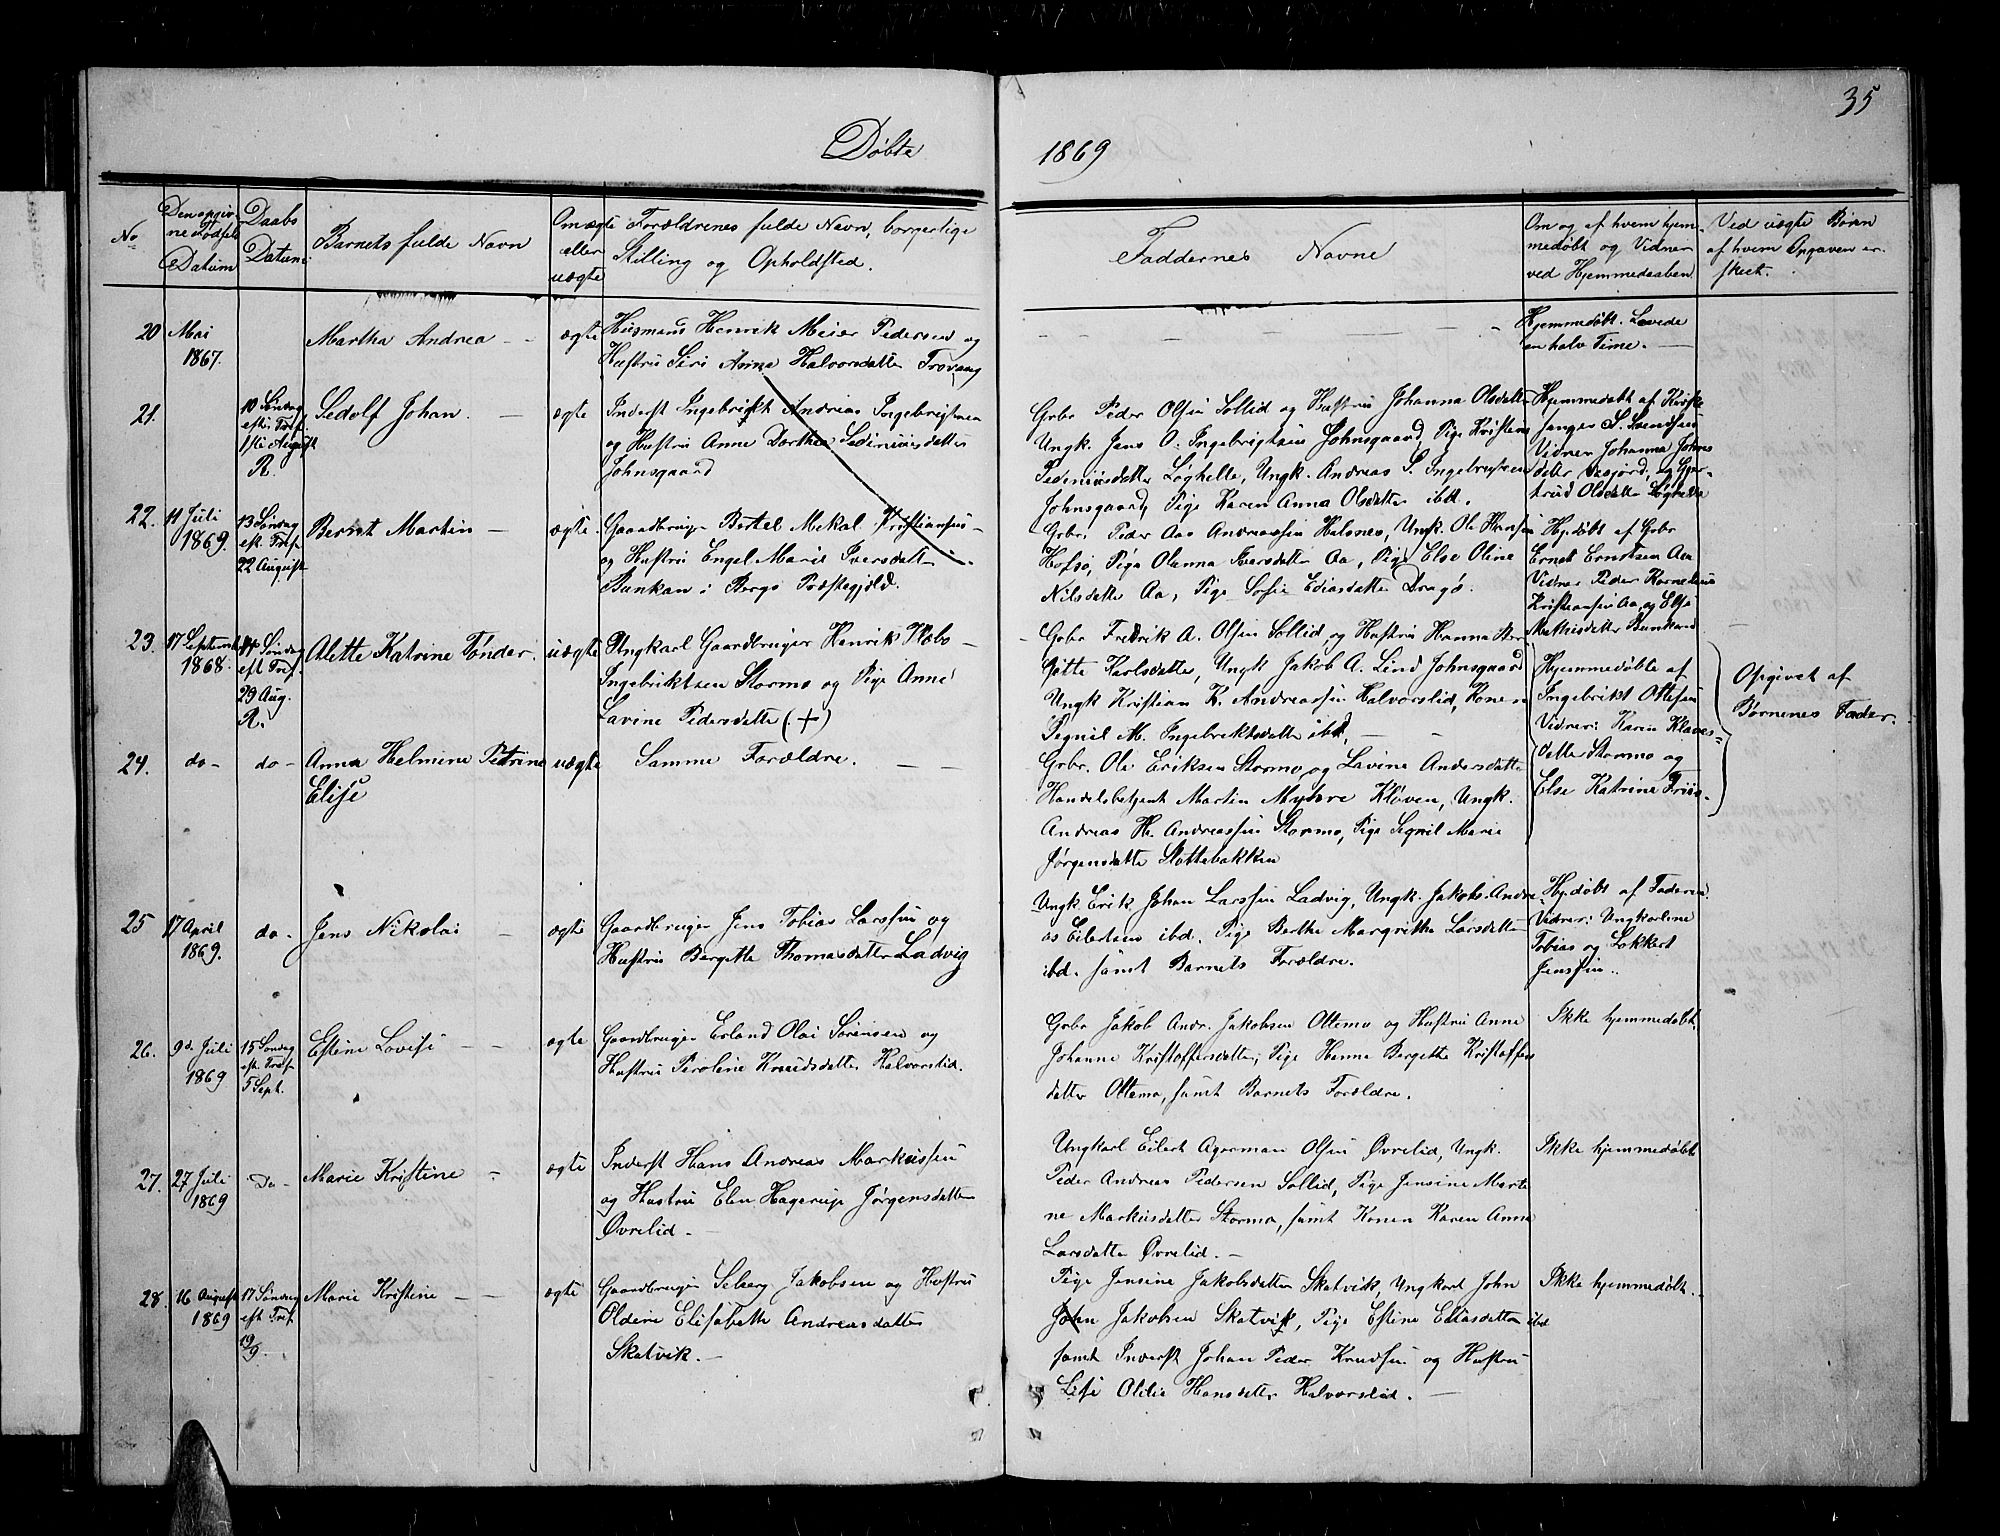 35
Døbte 1869
No
Den opgivne Fødsels Datum
Daabs Datum
Barnets fulde Navn
Om ægte eller uægte
Forældrenes fulde Navn, borgerlige
Stilling og Opholdsted.
Faddernes Navne
Om og af hvem hjem-
medøbt og Vidner
ved Hjemmedaaben
Ved uægte Børn
af hvem Opgaven er
skeet.
20 Mai 1867. Martha Andrea - - ægte
Husmand Henrik Meier Pedersen og
Hustru Siri Anna Halvorsdatter Trovaag
Hjemmedøbt. Levede
en halv Time. -
21. 10 Søndag
efter Tref.
1ste August
R.
Sedolf Johan. - ægte
Inderst Ingebrigt Andreas Ingebrigtsen
og Hustru Anne Dorthea Sediniusdatter
Johnsgaard
Grbr Peder Olsen Sollid og Hustru Johanna Olsdatter
Ungk. Jens O. Ingebrigtsen Johnsgaard, Pige Kristine
Pediniusdatter Løghelle, Ungk. Andreas S. Ingebrigtsen
Johnsgaard, Pige Karen Anna Olsdatter ibd.
Hjemmedøbt af Kirke
sanger S. Svendsen
Vidner Johanna Johns
datter og Gjer-
trud Olsdatter Løghelle
22. 11 Juli
1869.
13 Søndag
eft. Tref.
22 August
Bernt Martin - ægte.
Gaardbruger Bertel Mekal Kristiansen -
og Hustru Engel Marie Iversdatter
Bunkan i Bergs Præstegjeld.
Grbr. Peder Aas Andreassen Halsnes, Ungk. Ole Hansen
Hofsø, Pige Olanna Iversdatter Aa, Pige Else Oline
Nilsdatter Aa, Pige Sofie Ediasdatter Dragø.
Hjdøbt af Grbr
Ernst Ernstsen Aa
Vidner Peder Kornelius
Kristiansen Aa og Else
Mathisdatter Bunkan
23. 17 September
1868.
14 Søndag
eft Tref.
29 Aug.
R.
Alette Katrine Tønder. uægte
Ungkarl Gaardbruger Henrik Ræbo -
Ingebriktsen Stormo og Pige Anne
Lavine Pedersdatter (+)
- Grbr Fredrik A. Olsen Sollid og Hustru Hanna Ber
gitte Karlsdatter, Ungk Jakob A. Lind Johnsgaard
Ungk Kristian K. Andreassen Halvorslid, Konen
Signil M. Ingebriktsdatter ibd, - -
Hjemmedøbte af
Ingebrikt Ottesen
Vidner: Karen Klaves-
datter Stormo og
Else Katrine Friis.
Opgivet af
Børnenes Fader.
24. do- do- Anna Helmine Petrine
Elise
uægte Samme Forældre. - -
Grbr. Ole Eriksen Stormo og Lavine Andersdatter
Handelsbetjent Martin Myhre Kløven, Ungk.
Andreas H. Andreassen Stormo, Pige Signil Marie
Jørgensdatter Slottebakken
25 17 April
1869. do- Jens Nikolai - ægte
Gaardbruger Jens Tobias Larssen og
Hustru Bergette Thomasdatter Ladvig
Ungk Erik Johan Larssen Ladvig, Ungk. Jakob Andre
as Eilertsen ibd. Pige Berthe Margrithe Larsdatter
ibd. samt Barnets Forældre.
Hjdøbt af Faderen
Vidner: Ungkarlene
Tobias og Lokkert
Jenssen..
26. 9de Juli
1869
15 Søndag
eft. Tref.
5 Sept.
Estine Lovise - - ægte
Gaardbruger Erland Olai Sørensen og
Hustru Peroline Knudsdatter Halvorslid.
Grbr Jakob Andr. Jakobsen Oltemo og Hustru Anne
Johanne Kristoffersdatter, Pige Hanna Bergette Kristoffers
datter Oltemo, samt Barnets Forældre.
Ikke hjemmedøbt.
27. 27 Juli
1869 Do- Marie Kristine - ægte
Inderst Hans Andreas Markussen
og Hustru Elen Hagerup Jørgensdatter
Øvrelid. -
Ungkarl Eilert Agerman Olsen Øvrelid, Ungk.
Peder Andreas Pedersen Sollid, Pige Jensine Marte
ne Markusdatter Stormo, samt Konen Karen Anna
Larsdatter Øvrelid. -
Ikke hjemmedøbt
28. 16 August
1869
17 Søndag
eft Tref.
19/9.
Marie Kristine - - ægte
Gaardbruger Seberg Jakobsen og Hustru
Oldine Elisabeth Andreasdatter
Skatvik. -
Pige Jensine Jakobsdatter Skatvik, Ungkarl John
John Jakobsen Skatvik, Pige Estine Eliasdatter ibd
samt Inderst Johan Peder Knudsen og Hustru
Lise Oldie Hansdatter Halvorslid. -
Ikke hjemmedøbt.